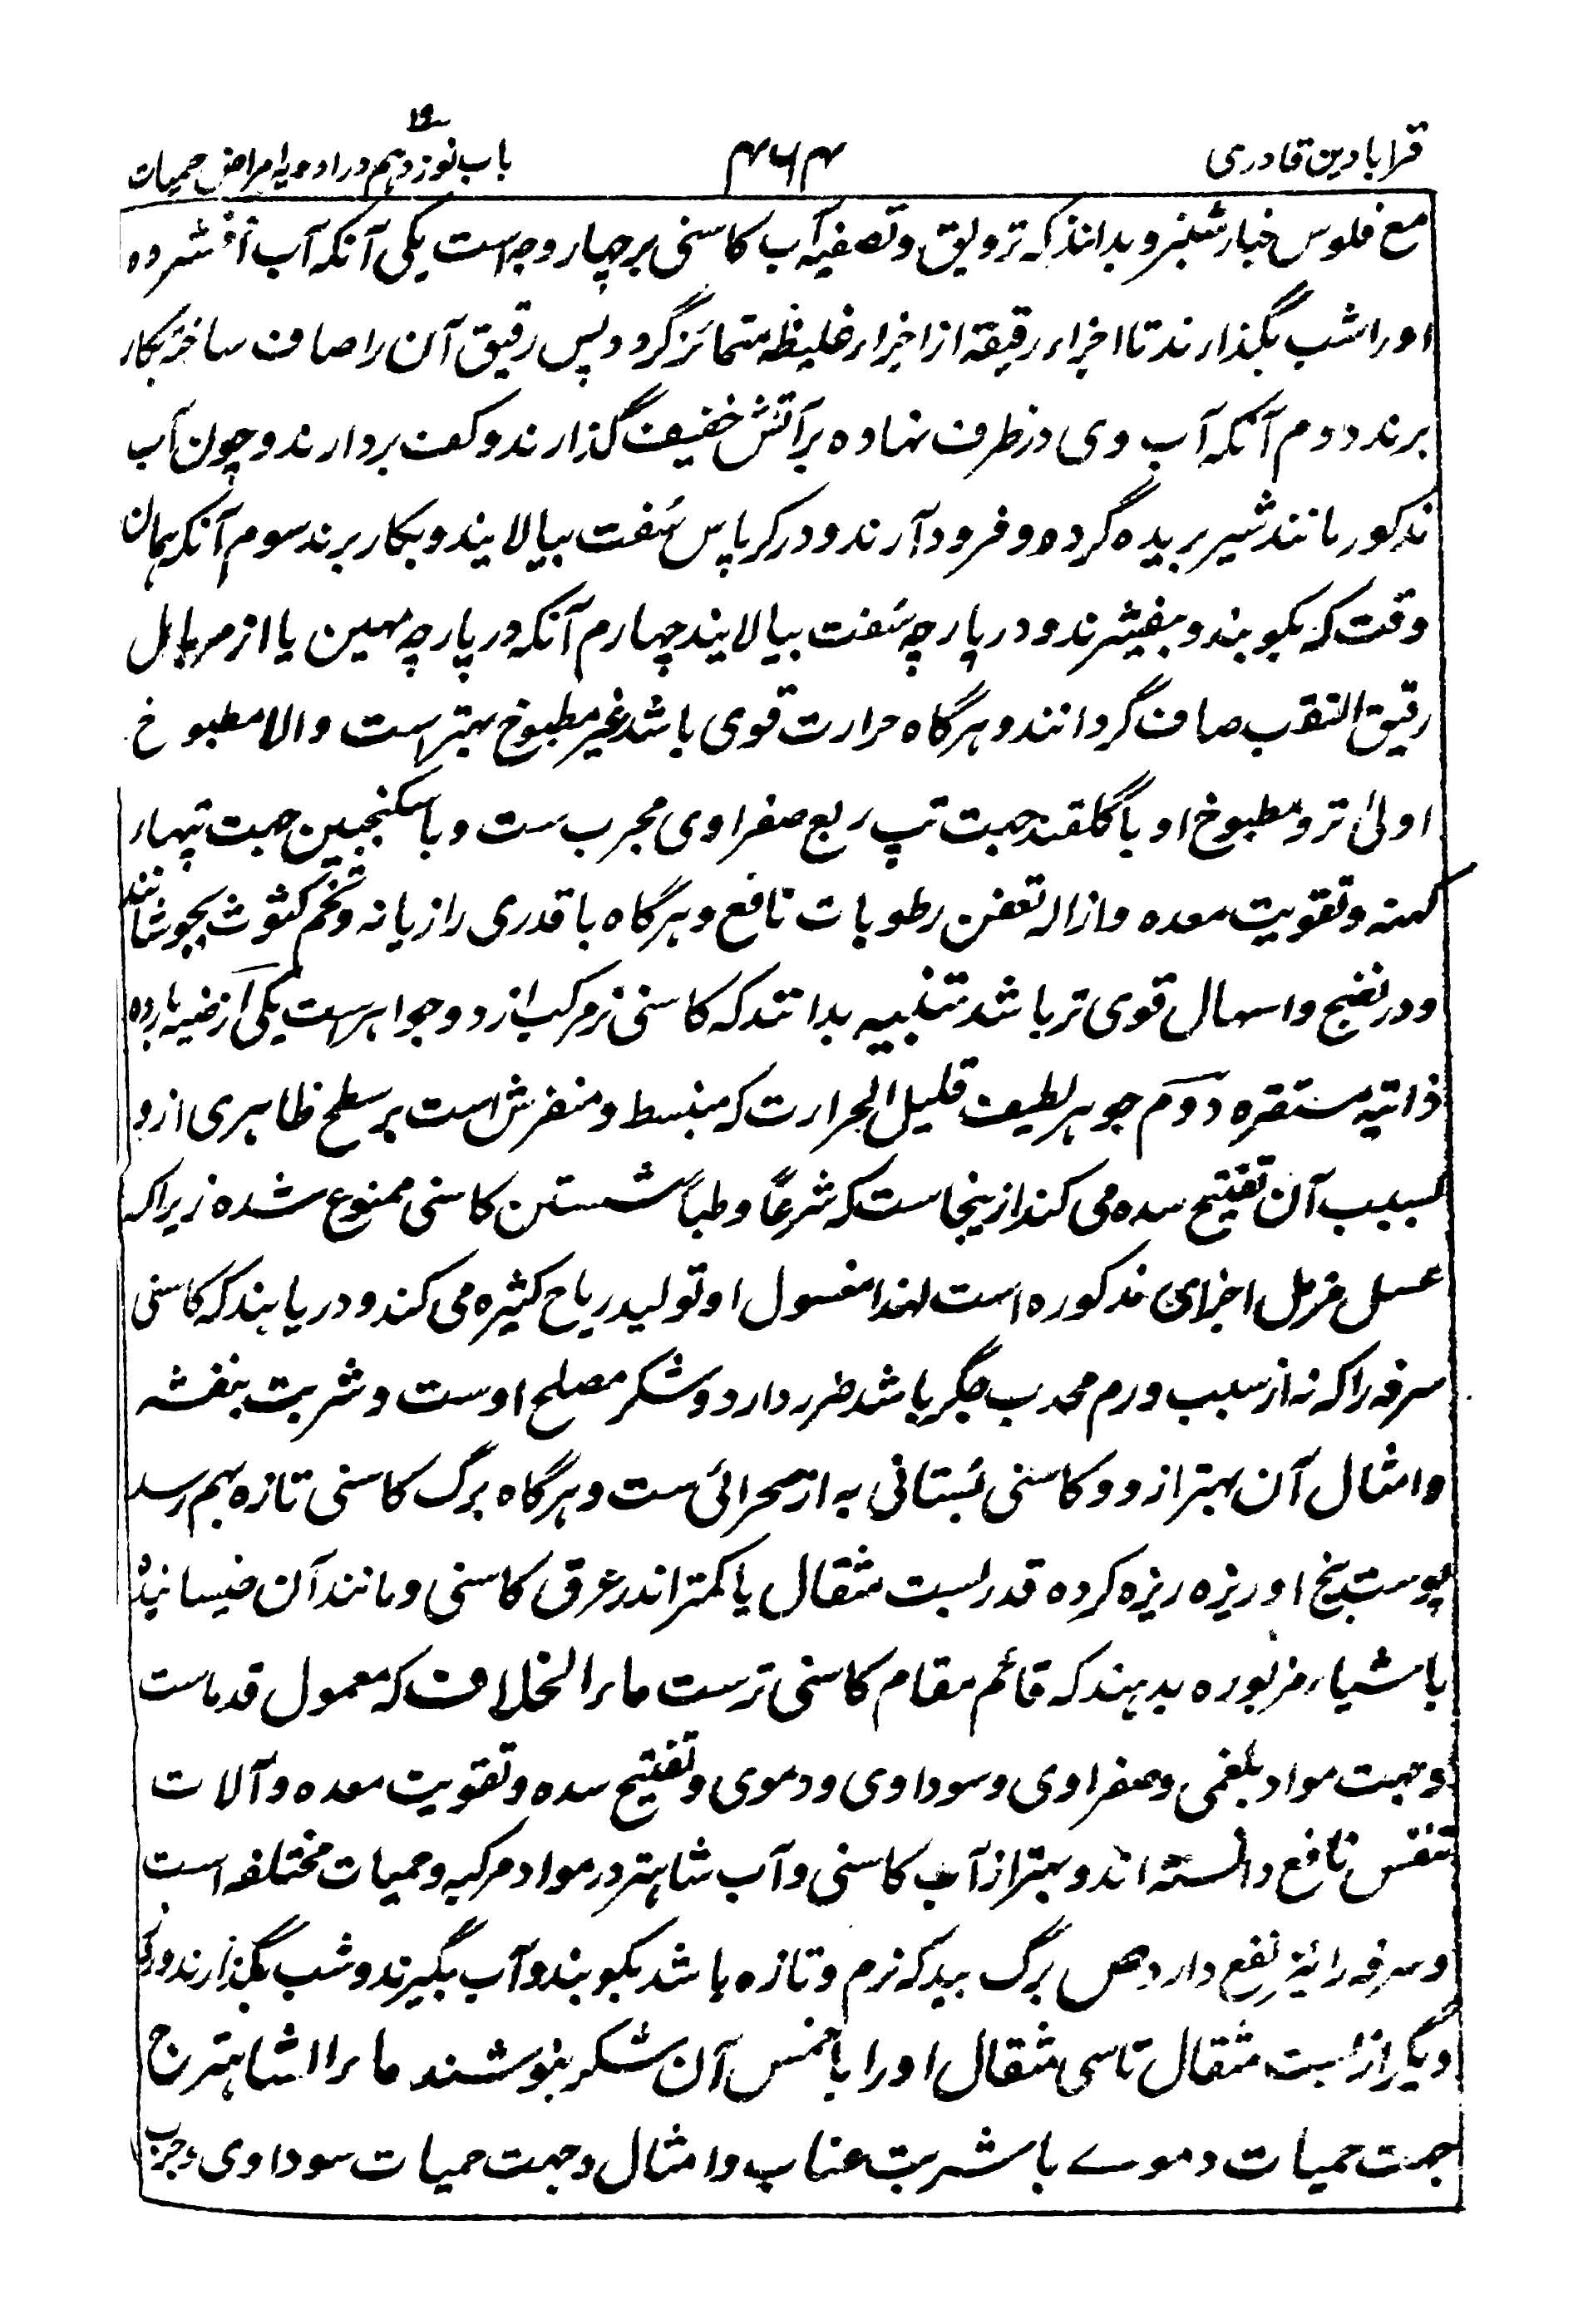 قرابادین قادری
۴۶۴
۱۹
باب نوزدہم در ادویہ امراض حمیات
مع فلوس خیار شنبر و بدانند کہ ترویق و تصفیہ آب کاسنی بر چہار وجہ است یکی آنکہ آب افشردہ
او را شب بگذارند تا اجزاء رقیقہ از اجزاء غلیظہ متمائز گردد پس رقیق آن را صاف ساختہ بکار
برند دوم آنکہ آب وی در ظرف نهاده بر آتش خفیف گذارند و کف بردارند و چون آب
مذکور مانند شیر بریدہ گردد و فرود آرند و در کرپاس سُفت بپالایند و بکار برند سوم آنکہ ہمان
وقت کہ بکوبند و بیفشرند و در پارچہ سُفت بپالایند چہارم آنکہ در پارچہ مہین یا از
رقیق الثقب صاف گردانند و ہرگاہ حرارت قوی باشد غیر مطبوخ بہتر است والا مطبوخ
اولیٰ تر و مطبوخ او با گلقند جہت تپ ربع صفراوی مجرب ست و با سکنجبین جہت تپہار
کہنہ و تقویت معدہ و ازالہ تعفن رطوبات نافع و ہرگاہ با قدری رازیانہ و تخم کثوث بجوشانند
و در نضج و اسہال قوی تر باشد تنبیہ بدانند کہ کاسنی مرکب از دو جواہر ست یکی ارضیہ باردہ
ذاتیہ مستقرہ دوم جوہر لطیف قلیل الحرارت کہ منبسط و منفرش است بر سطح ظاہری از و
بسبب آن تفتیح سدہ می کند ازینجاست کہ شرعًا و طبًا شستن کاسنی ممنوع شدہ زیرا کہ
غسل مزیل اجزای مذکورہ است لہذا مغسول او تولید ریاح کثیرہ می کند و دریابند کہ کاسنی
سرفہ را کہ نہ از سبب ورم محدب جگر باشد ضرر دارد و شکر مصلح اوست و شربت بنفشہ
و امثال آن بہتر ازو و کاسنی بُستانی بہ از صحرائی ست و ہرگاہ برگ کاسنی تازہ بہم رسد
پوست بیخ او ریزہ ریزہ کردہ قدر بست مثقال یا کمتر اندر عرق کاسنی و مانند آن خیسانیدہ
باشیاء مزبورہ بدہند کہ قائم مقام کاسنی ترست ماء الخلاف کہ معمول قدماست
و جہت مواد بلغمی و صفراوی و سوداوی و دموی و تفتیح سدہ و تقویت معدہ و آلات
تنفس نافع دانستہ اند و بہتر از آب کاسنی و آب شاہتر در مواد مرکبہ و حمیات مختلفہ است
و سرفہ را نیز نفع دارد ص برگ بید کہ نرم و تازہ باشد بکوبند و آب بگیرند و شب بگذارند و
دیگر از بست مثقال تا سی مثقال او را با خمس آن شکر بنوشند ماء الشاہترج
جہت حمیات دموے با شربت عناب و امثال و جہت حمیات سوداوی و جرب